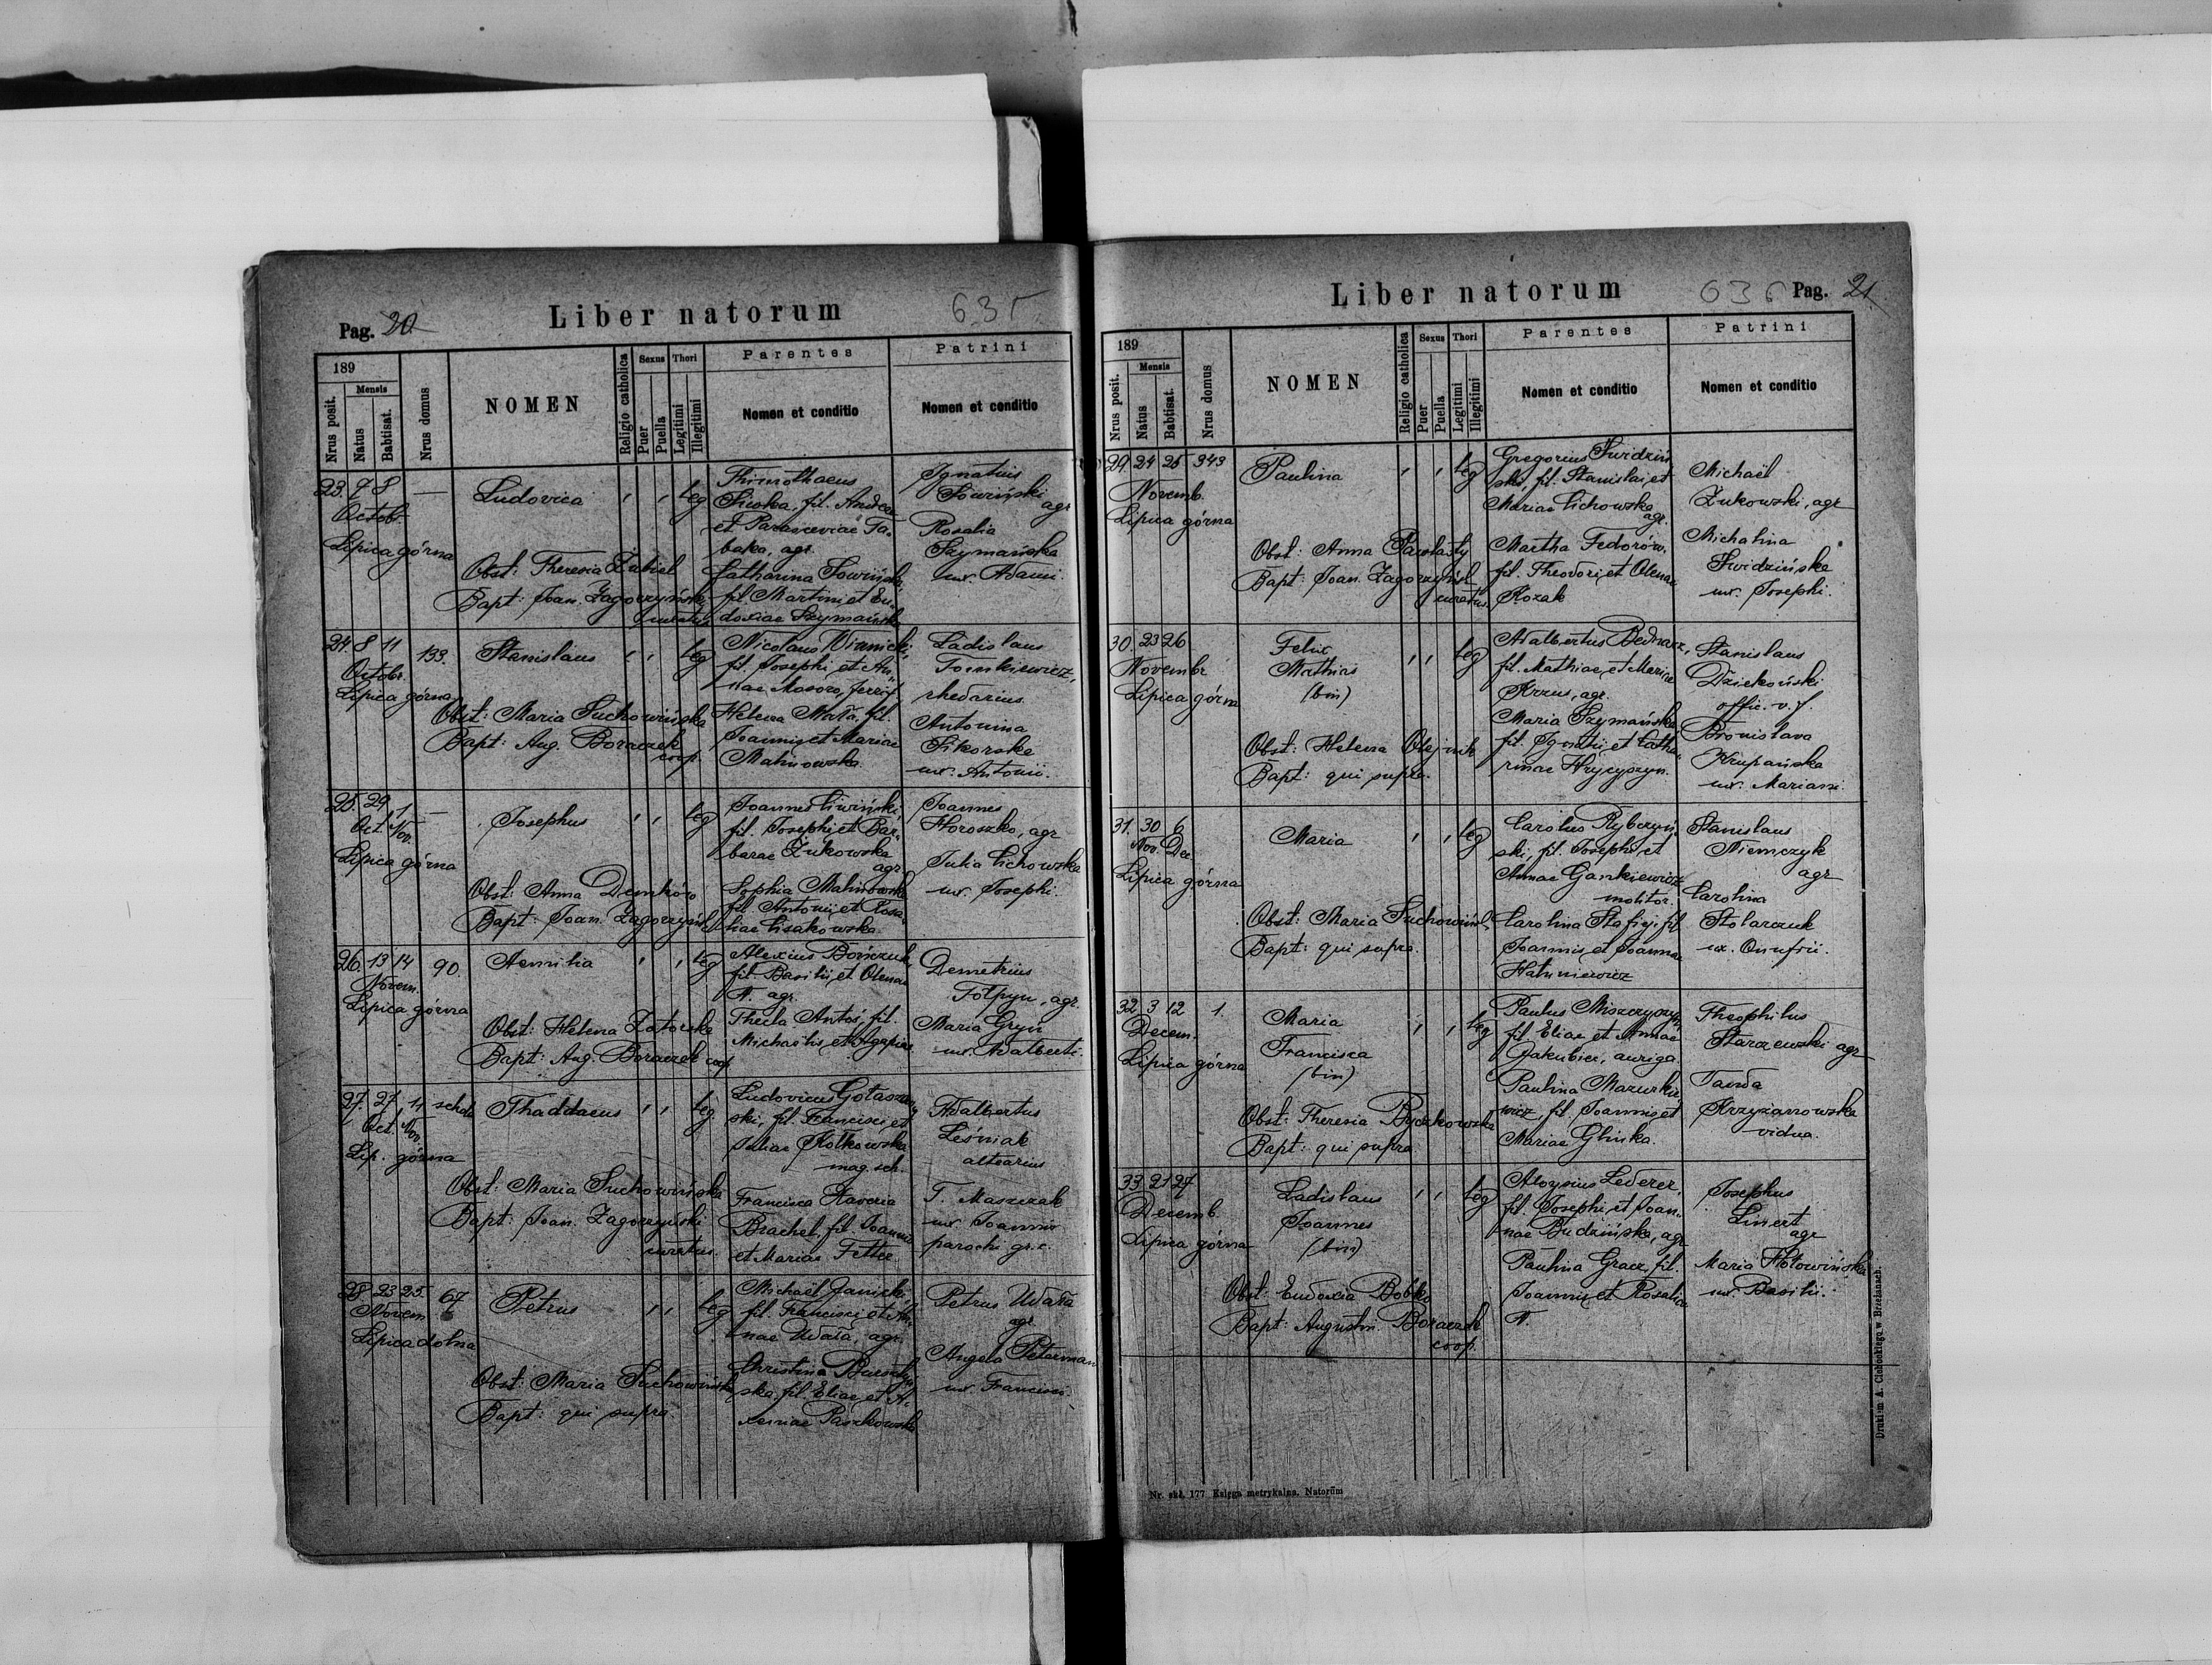 Pag. 20
Liber natorum
635
189
Nrus posit.
Mensis
Natus
Babtisat.
Nrus domus
NOMEN
Religio catholica
Sexus
Puer
Puella
Thori
Legitimi
Illegitimi
Parentes
Nomen et conditio
Patrini
Nomen et conditio
23. 7 8 —
Octob.
Lipica górna
Ludovica
leg
Obst: Theresia Zubiel
Bapt: Joan. Zagorzyński
curatus
Thimothaeus
Siwka, fil. Andreae
et Parasceviae Ta-
baka, agr.
Catharina Sowińska,
fil. Martini et Eu-
doxiae Szymańska
Ignatius
Sowiński
agr
Rosalia
Szymańska
ux. Adami.
24. 8 11 133.
Octobr.
Lipica górna
Stanislaus
leg
Obst: Maria Suchowińska
Bapt: Aug. Boraczek
coop.
Nicolaus Winnicki,
fil. Josephi et An-
nae Mosoro,
Helena Mała, fil.
Joannis et Mariae
Malinowska.
Ladislaus
Tomkiewicz,
rhedarius.
Antonina
Sikorska
ux. Antonii.
25. 29 1 —
Oct. Nov.
Lipica górna
Josephus
leg
Obst: Anna Demków
Bapt: Joan. Zagorzyński
Joannes Liwiński,
fil. Josephi et Bar-
barae Żukowska
agr
Sophia Malinowska
fil. Antonii et Rosa-
liae Lisakowska.
Joannes
Horoszko, agr
Julia Cichowska
ux. Josephi.
26. 13 14 90.
Novem.
Lipica górna
Aemilia
leg
Obst: Helena Zatorska
Bapt: Aug. Boraczek coop
Alexius Bończuk,
fil. Basilii et Olenae
N. agr.
Thecla Antoś, fil.
Michaëlis et Agapiae
Demetrius
Tołpyn, agr.
Maria Gryn
ux. Adalberti.
27. 27 11 schola
Oct. Nov.
Lip. górna
Thaddaeus
leg
Obst: Maria Suchowińska
Bapt: Joan. Zagorzyński
curatus.
Ludovicus Gołaszew-
ski, fil. Francisci et
Juliae Kotkowska
mag. sch.
Francisca Xaveria
Brachel, fil. Joannis
et Mariae Fette.
Adalbertus
Leśniak
altarius
T. Maszczak
ux. Joannis
parochi gr. c.
28 23 25. 67
Novem
Lipica dolna
Petrus
leg
Obst: Maria Suchowińska
Bapt: qui supra.
Michaël Janicki,
fil. Francisci et An-
nae Udała, agr.
Christina
ska, fil. Eliae et A-
xeniae Paszkowska
Petrus Udała
agr.
Angela Peterman
ux. Francisci.
Liber natorum
636
Pag. 21
189
Nrus posit.
Mensis
Natus
Babtisat.
Nrus domus
NOMEN
Religio catholica
Sexus
Puer
Puella
Thori
Legitimi
Illegitimi
Parentes
Nomen et conditio
Patrini
Nomen et conditio
29. 24 25 343
Novemb.
Lipica górna
Paulina
leg
Obst: Anna
Bapt: Joan. Zagorzyński
curatus.
Gregorius Swidziń-
ski, fil. Stanislai et
Mariae Cichowska
agr.
Martha Fedorów,
fil. Theodori et Olenae
Kozak
Michaël
Żukowski, agr
Michalina
Swidzińska
ux. Josephi.
30. 23 26
Novembr
Lipica górna
Felix
Mathias
(bin)
leg
Obst: Helena Olejnik
Bapt: qui supra.
Adalbertus Bednarz,
fil. Mathiae et Mariae
Krzus, agr.
Maria Szymańska
fil. Ignatii et Catha-
rinae Hrycyszyn.
Stanislaus
Dziekoński
offic. v. f.
Bronislava
Krupańska
ux. Mariani.
31. 30 6
Nov. Dec
Lipica górna
Maria
leg
Obst: Maria Suchowińs.
Bapt: qui supra.
Carolus Rybczyń-
ski, fil. Josephi et
Annae Gankiewicz
molitor.
Carolina Stafiej, fil
Joannis et Joannae
Hatuniewicz
Stanislaus
Niemczyk
agr
Carolina
Stolarczuk
ux. Onufrii.
32. 3 12 1.
Decem.
Lipica górna
Maria
Francisca
(bin)
leg
Obst: Theresia Byczkowska
Bapt: qui supra.
Paulus Miszczyszyn,
fil. Eliae et Annae
Jakubiec, auriga.
Paulina Mazurkie-
wicz, fil. Joannis et
Mariae Glinka.
Theophilus
Starzewski agr
Tauda
Krzyżanowska
vidua.
33. 21 27
Decemb.
Lipica górna
Ladislaus
Joannes
(bin)
leg
Obst: Eudoxia Bobko
Bapt: Augustin. Boraczek
coop.
Aloysius Lederer,
fil. Josephi et Joan-
nae Budzińska, agr
Paulina Gracz, fil.
Joannis et Rosaliae
N.
Josephus
Linert
agr
Maria Hołowińska
ux. Basilii.
Nr. skł. 177 Księga metrykalna. Natorum
Drukiem A. Cichockiego w Brzeżanach.